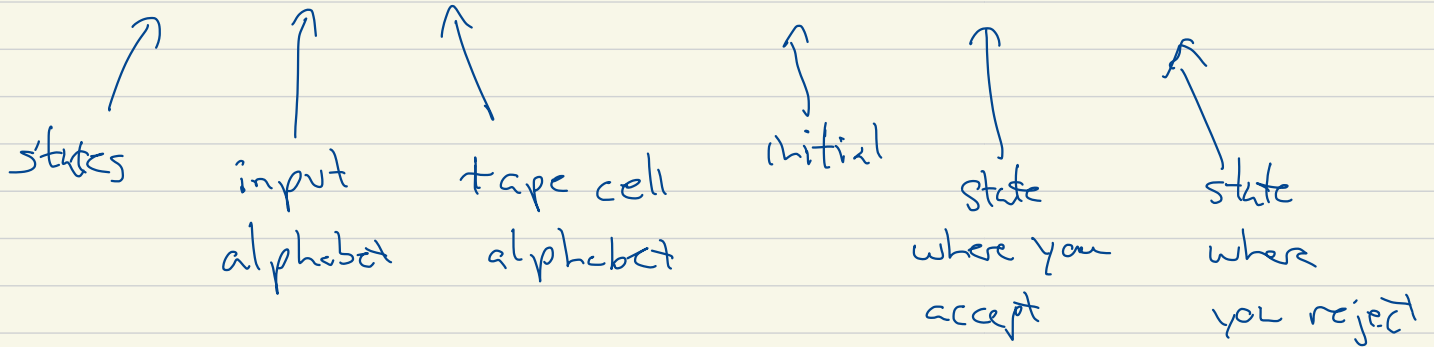 states
input
alphabet
tape cell
alphabet
initial
state
where you
accept
state
where
you reject